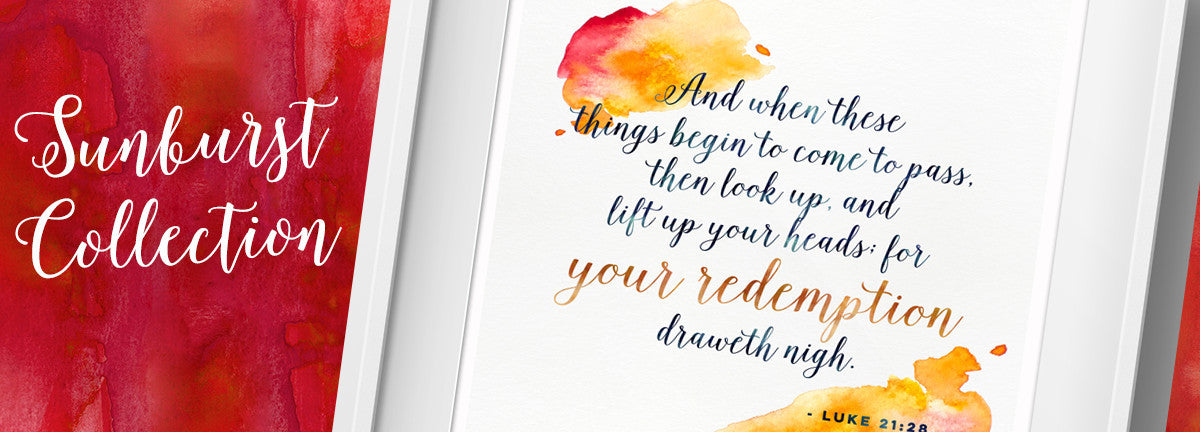 Sunburst
Collection
And when these
things begin to come to pass,
then look up, and
lift up your heads; for
your redemption
draweth nigh.
- LUKE 21:28